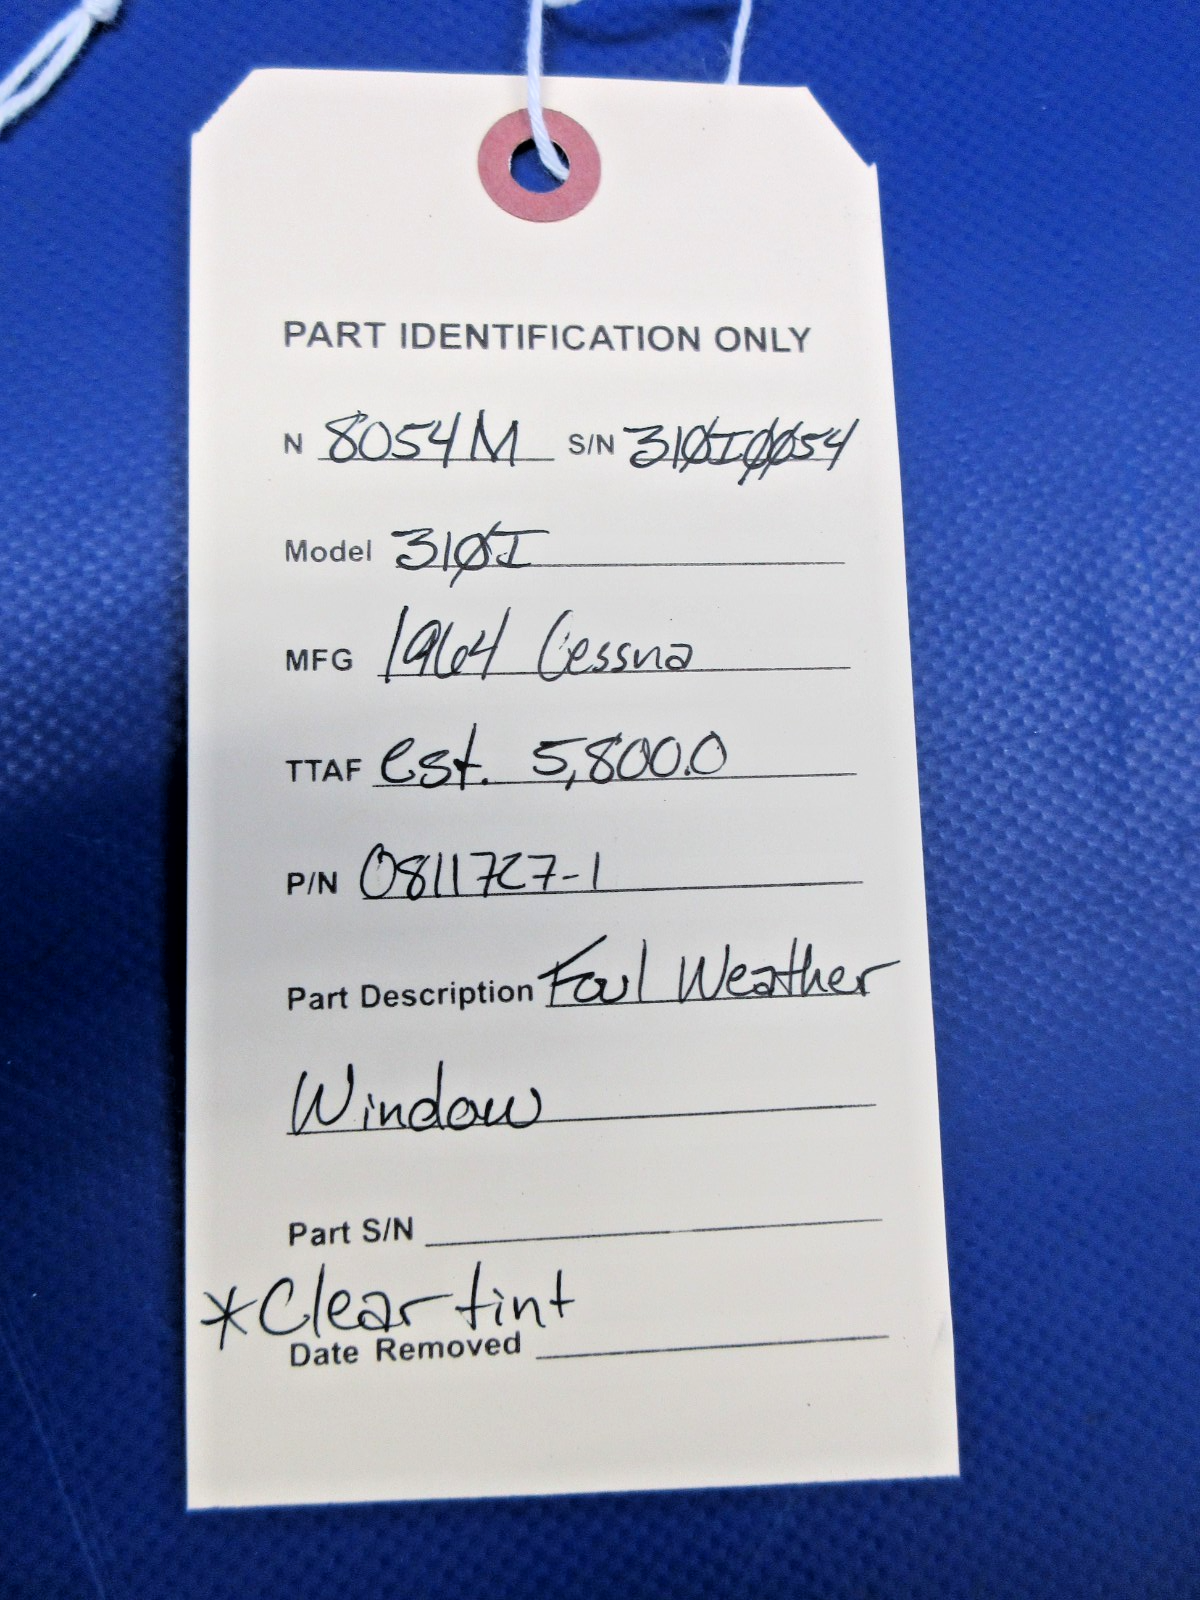 PART IDENTIFICATION ONLY
N 8054M S/N 310I0054
Model 310I
MFG 1964 Cessna
TTAF est. 5,800.0
P/N 0811727-1
Part Description Foul Weather
Window
Part S/N
*Clear tint
Date Removed